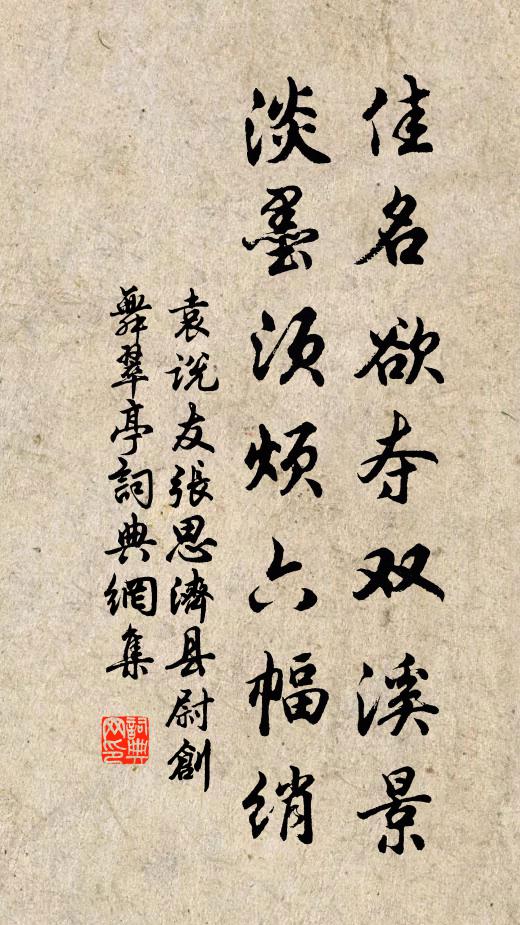 佳名欲夺双溪景
淡墨须烦六幅绡
袁说友張思濟县尉創
舞翠亭詞典網集
詞典网印